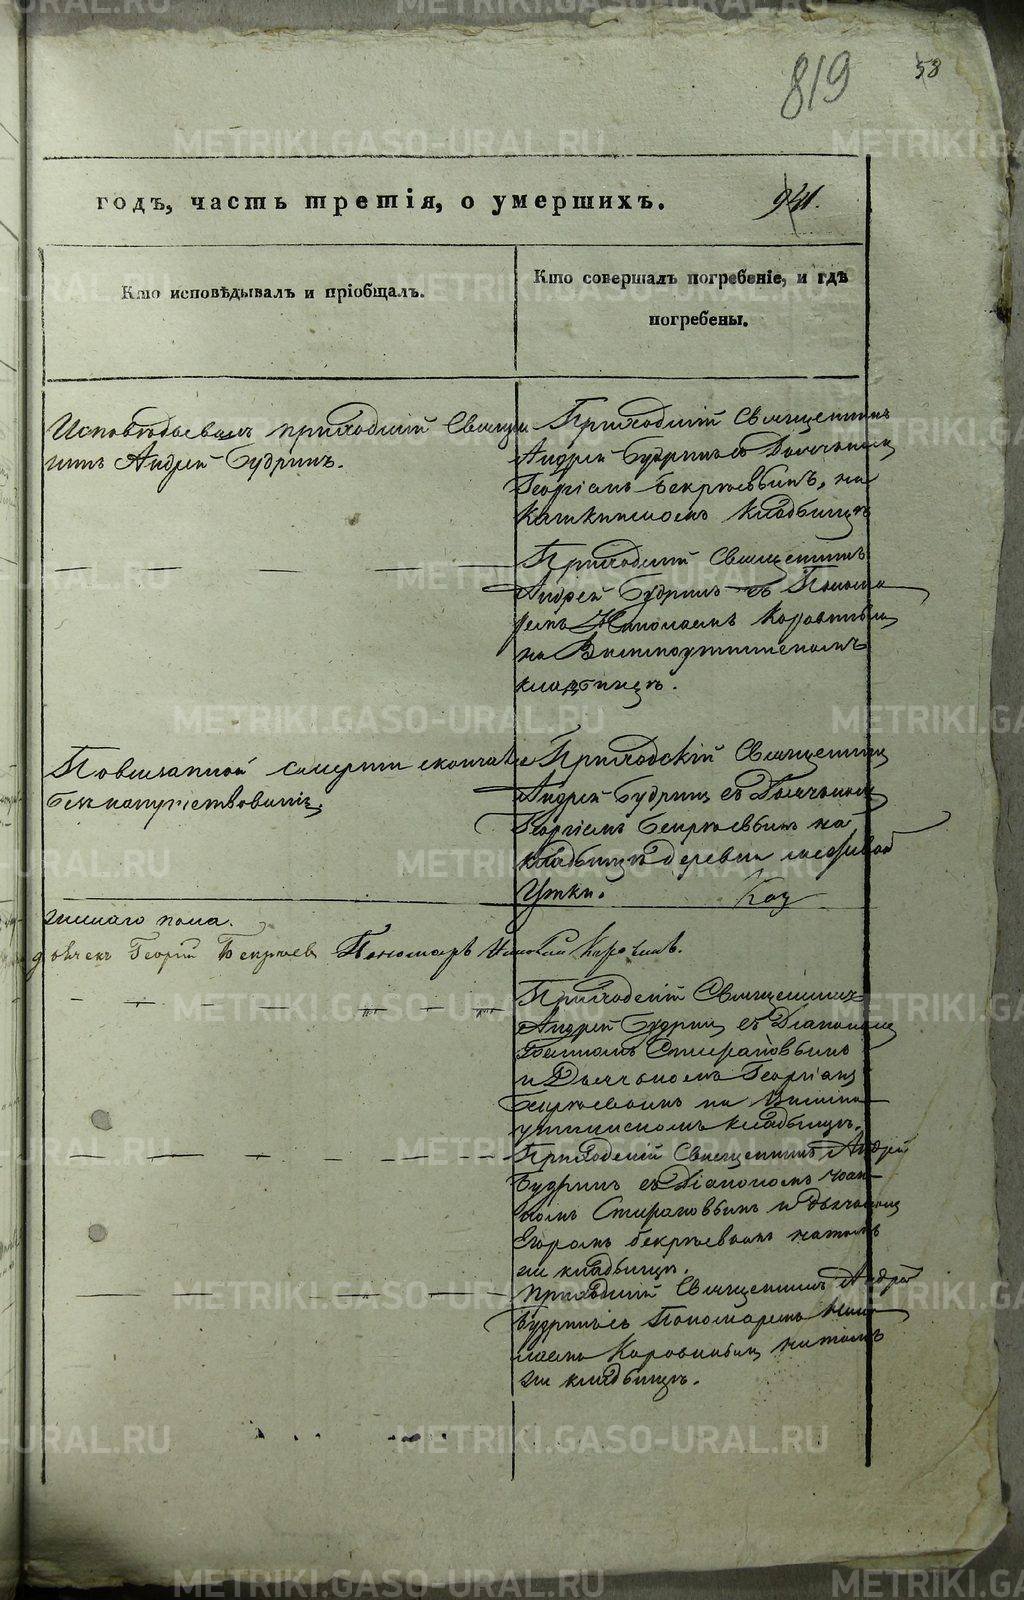 819
58
годъ, часть третія, о умершихъ.
941.
Кто исповѣдывалъ и пріобщалъ.
Кто совершалъ погребеніе, и гдѣ
погребены.
Исповѣдывалъ приходскій Священ
никъ Андрей Будринъ.
Приходскій Священникъ
Андрей Будринъ съ Дьячкомъ
Георгіемъ Бекряевымъ, на
кладбищѣ
Приходскій Священникъ
Андрей Будринъ съ Понома
ремъ Николаемъ Коровинымъ
на
кладбищѣ.
смерти
безъ напутствованія.
Приходскій Священникъ
Андрей Будринъ съ Дьячкомъ
Георгіемъ Бекряевымъ на
кладбищѣ деревни
Утки.
Коу
пола.
Георгій Бекряевъ Пономарь Николай Коровинъ.
Приходскій Священникъ
Андрей Будринъ съ Діакономъ
и Дьячкомъ Георгіемъ
Бекряевымъ на
кладбищѣ.
Приходскій Священникъ Андрей
Будринъ съ Діакономъ Іоан
номъ и Дьячкомъ
Егоромъ Бекряевымъ на томъ
же кладбищѣ.
Приходскій Священникъ Андрей
Будринъ съ Пономаремъ Нико
лаемъ Коровинымъ на томъ
же кладбищѣ.
METRIKI.GASO-URAL.RU